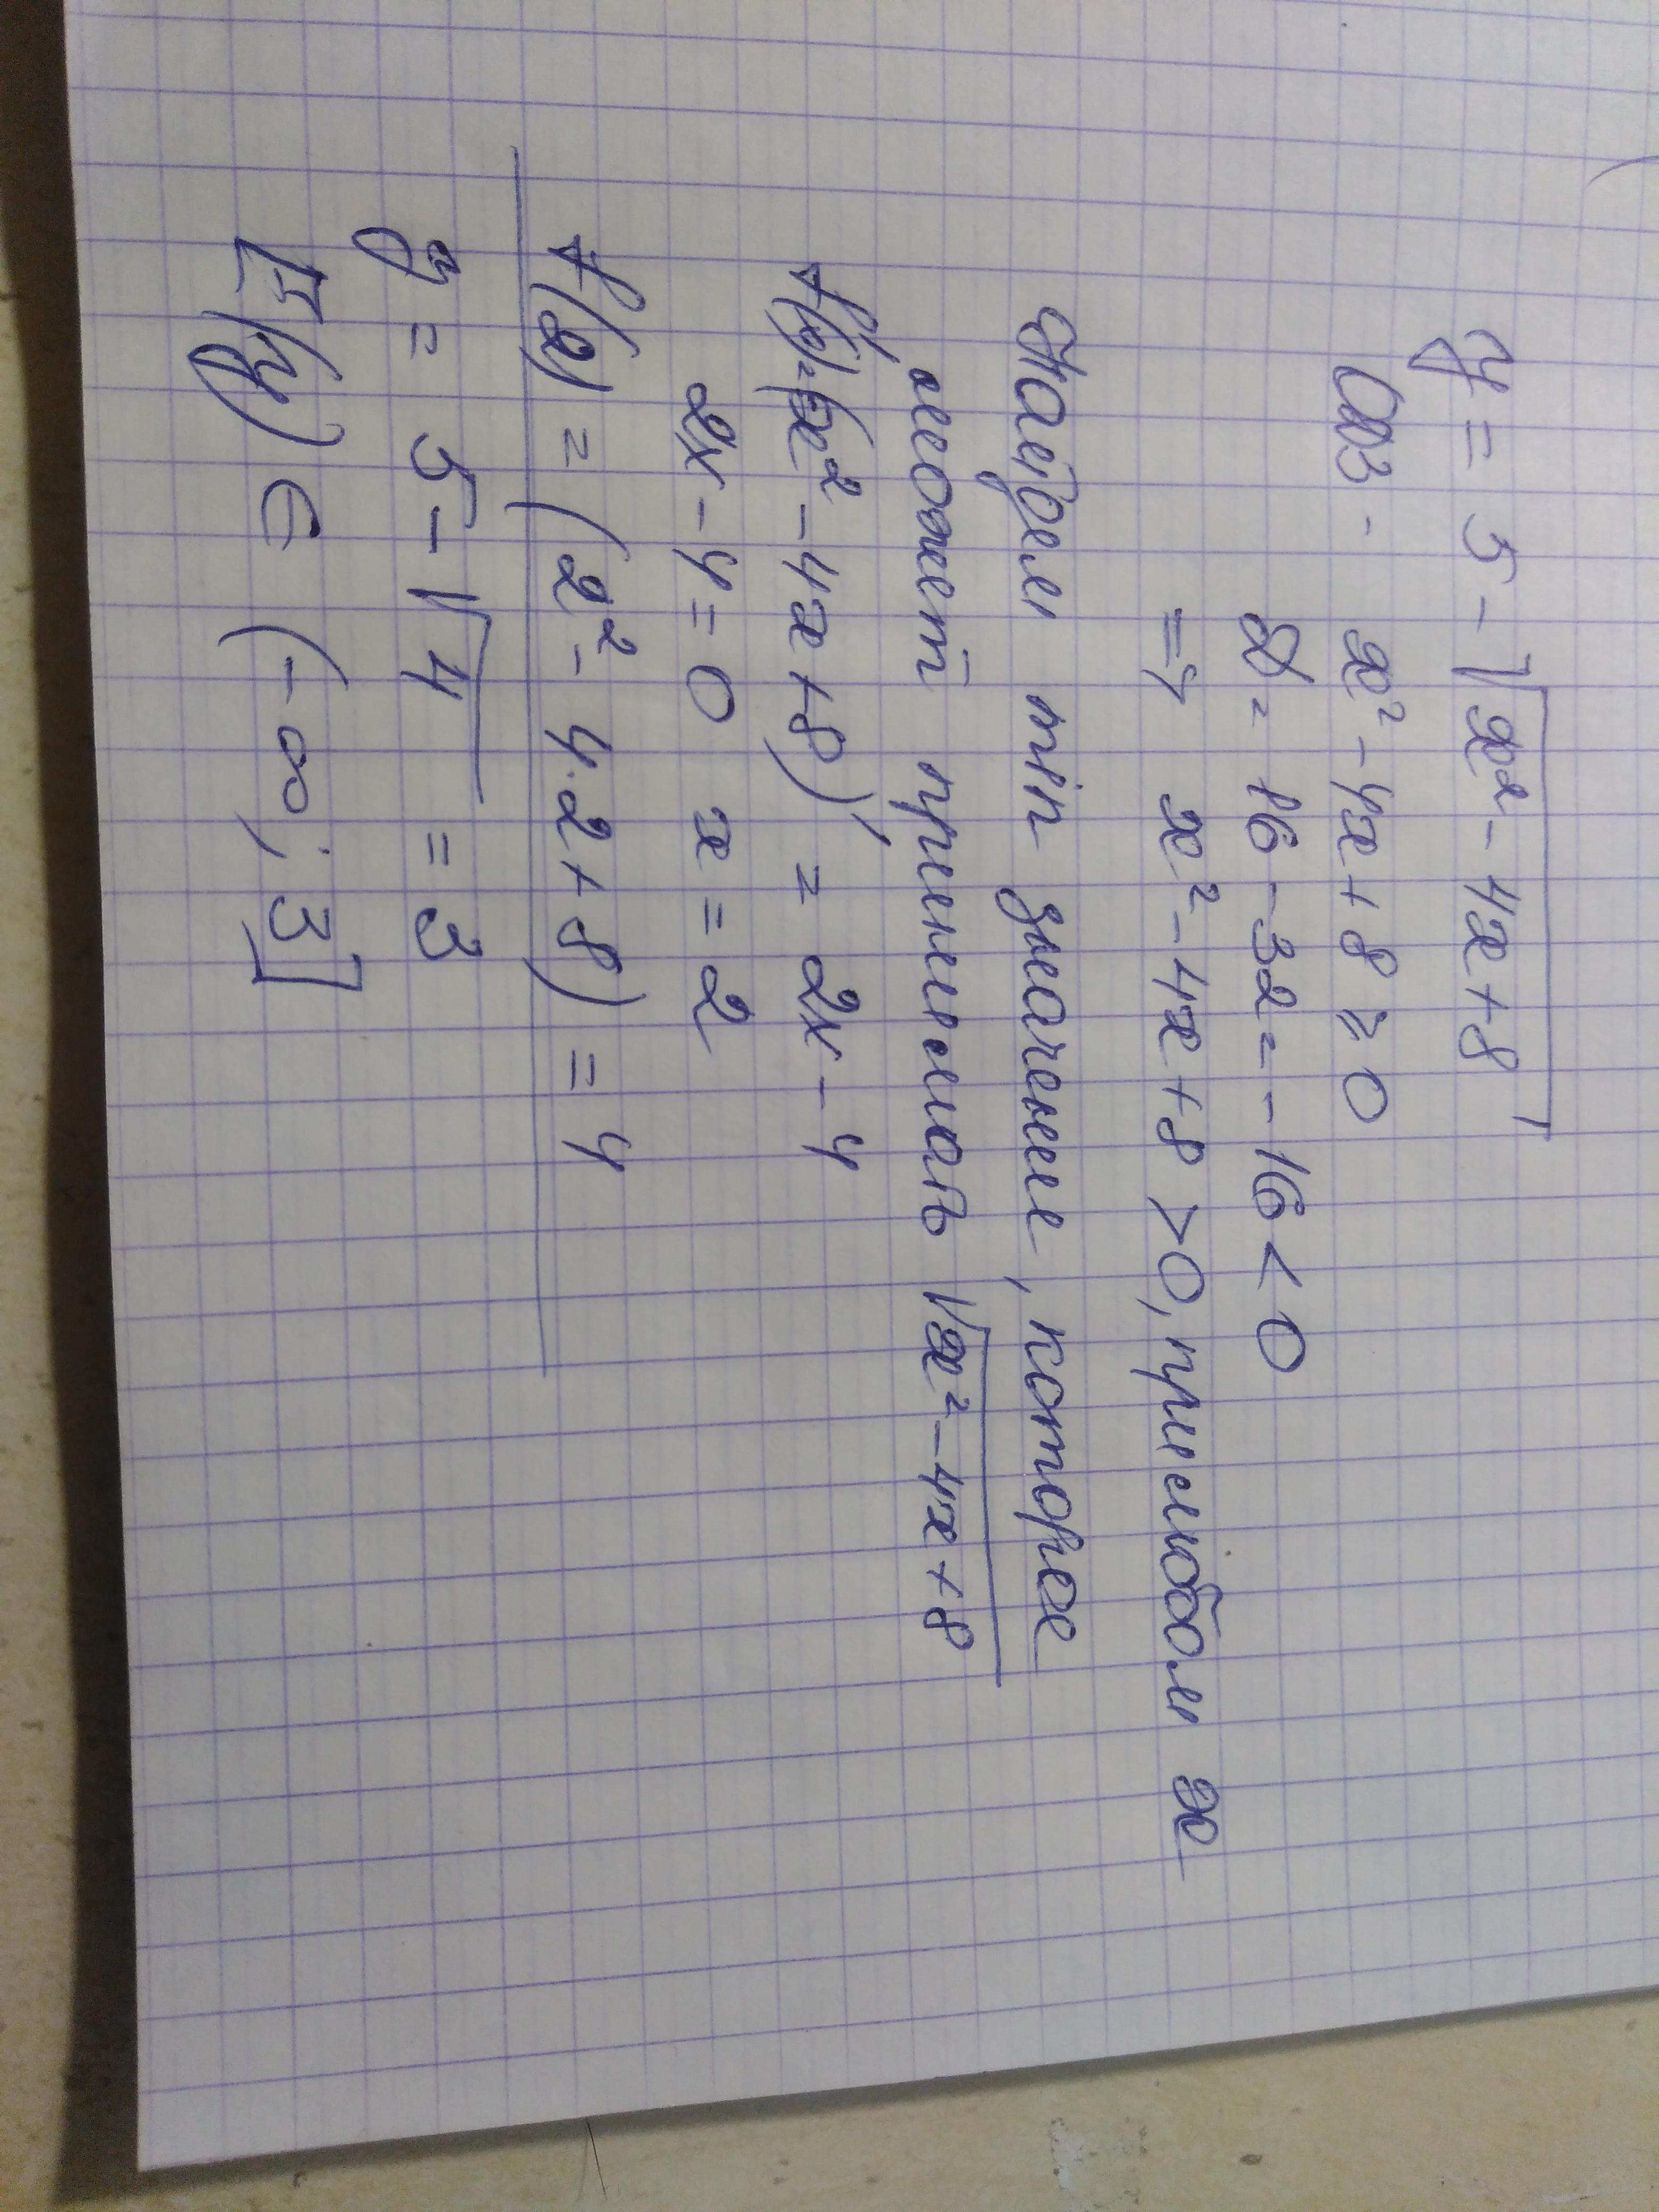 y = 5 - √x² - 4x + 8
ОДЗ - x² - 4x + 8 ≥ 0
D = 16 - 32 = - 16 < 0
=> x² - 4x + 8 > 0, при любом x
Найдем min значение, которое
может принимать √x² - 4x + 8
f'(x) = (x² - 4x + 8)' = 2x - 4
2x - 4 = 0 x = 2
f(2) = (2² - 4·2 + 8) = 4
y = 5 - √4 = 3
E(y) ∈ (-∞; 3]